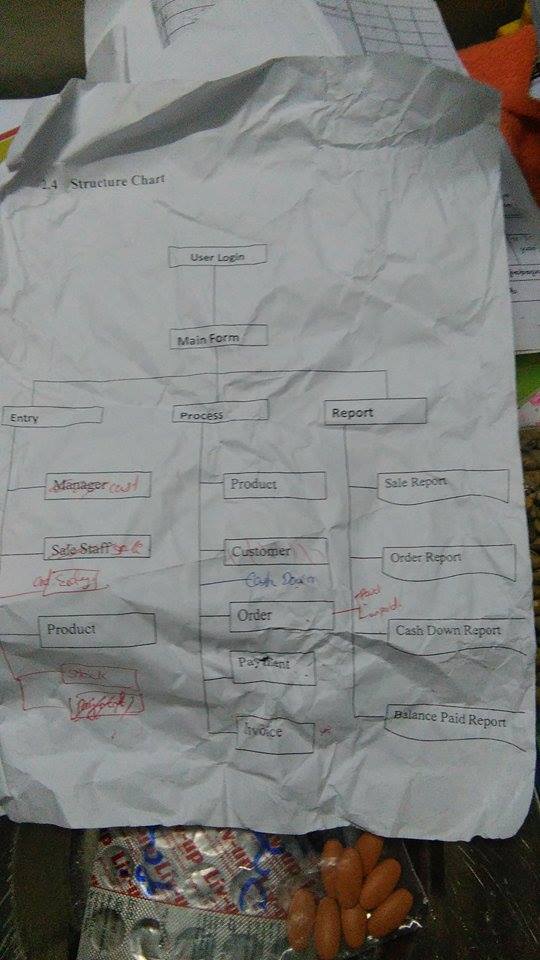 2.4 Structure Chart
User Login
Main Form
Entry
Process
Report
Manager
Product
Sale Report
Sale Staff
Customer
Order Report
Entry
Cash Down
Paid
Unpaid
Product
Order
Cash Down Report
Stock
Payment
Invoice
Balance Paid Report
Liv-up